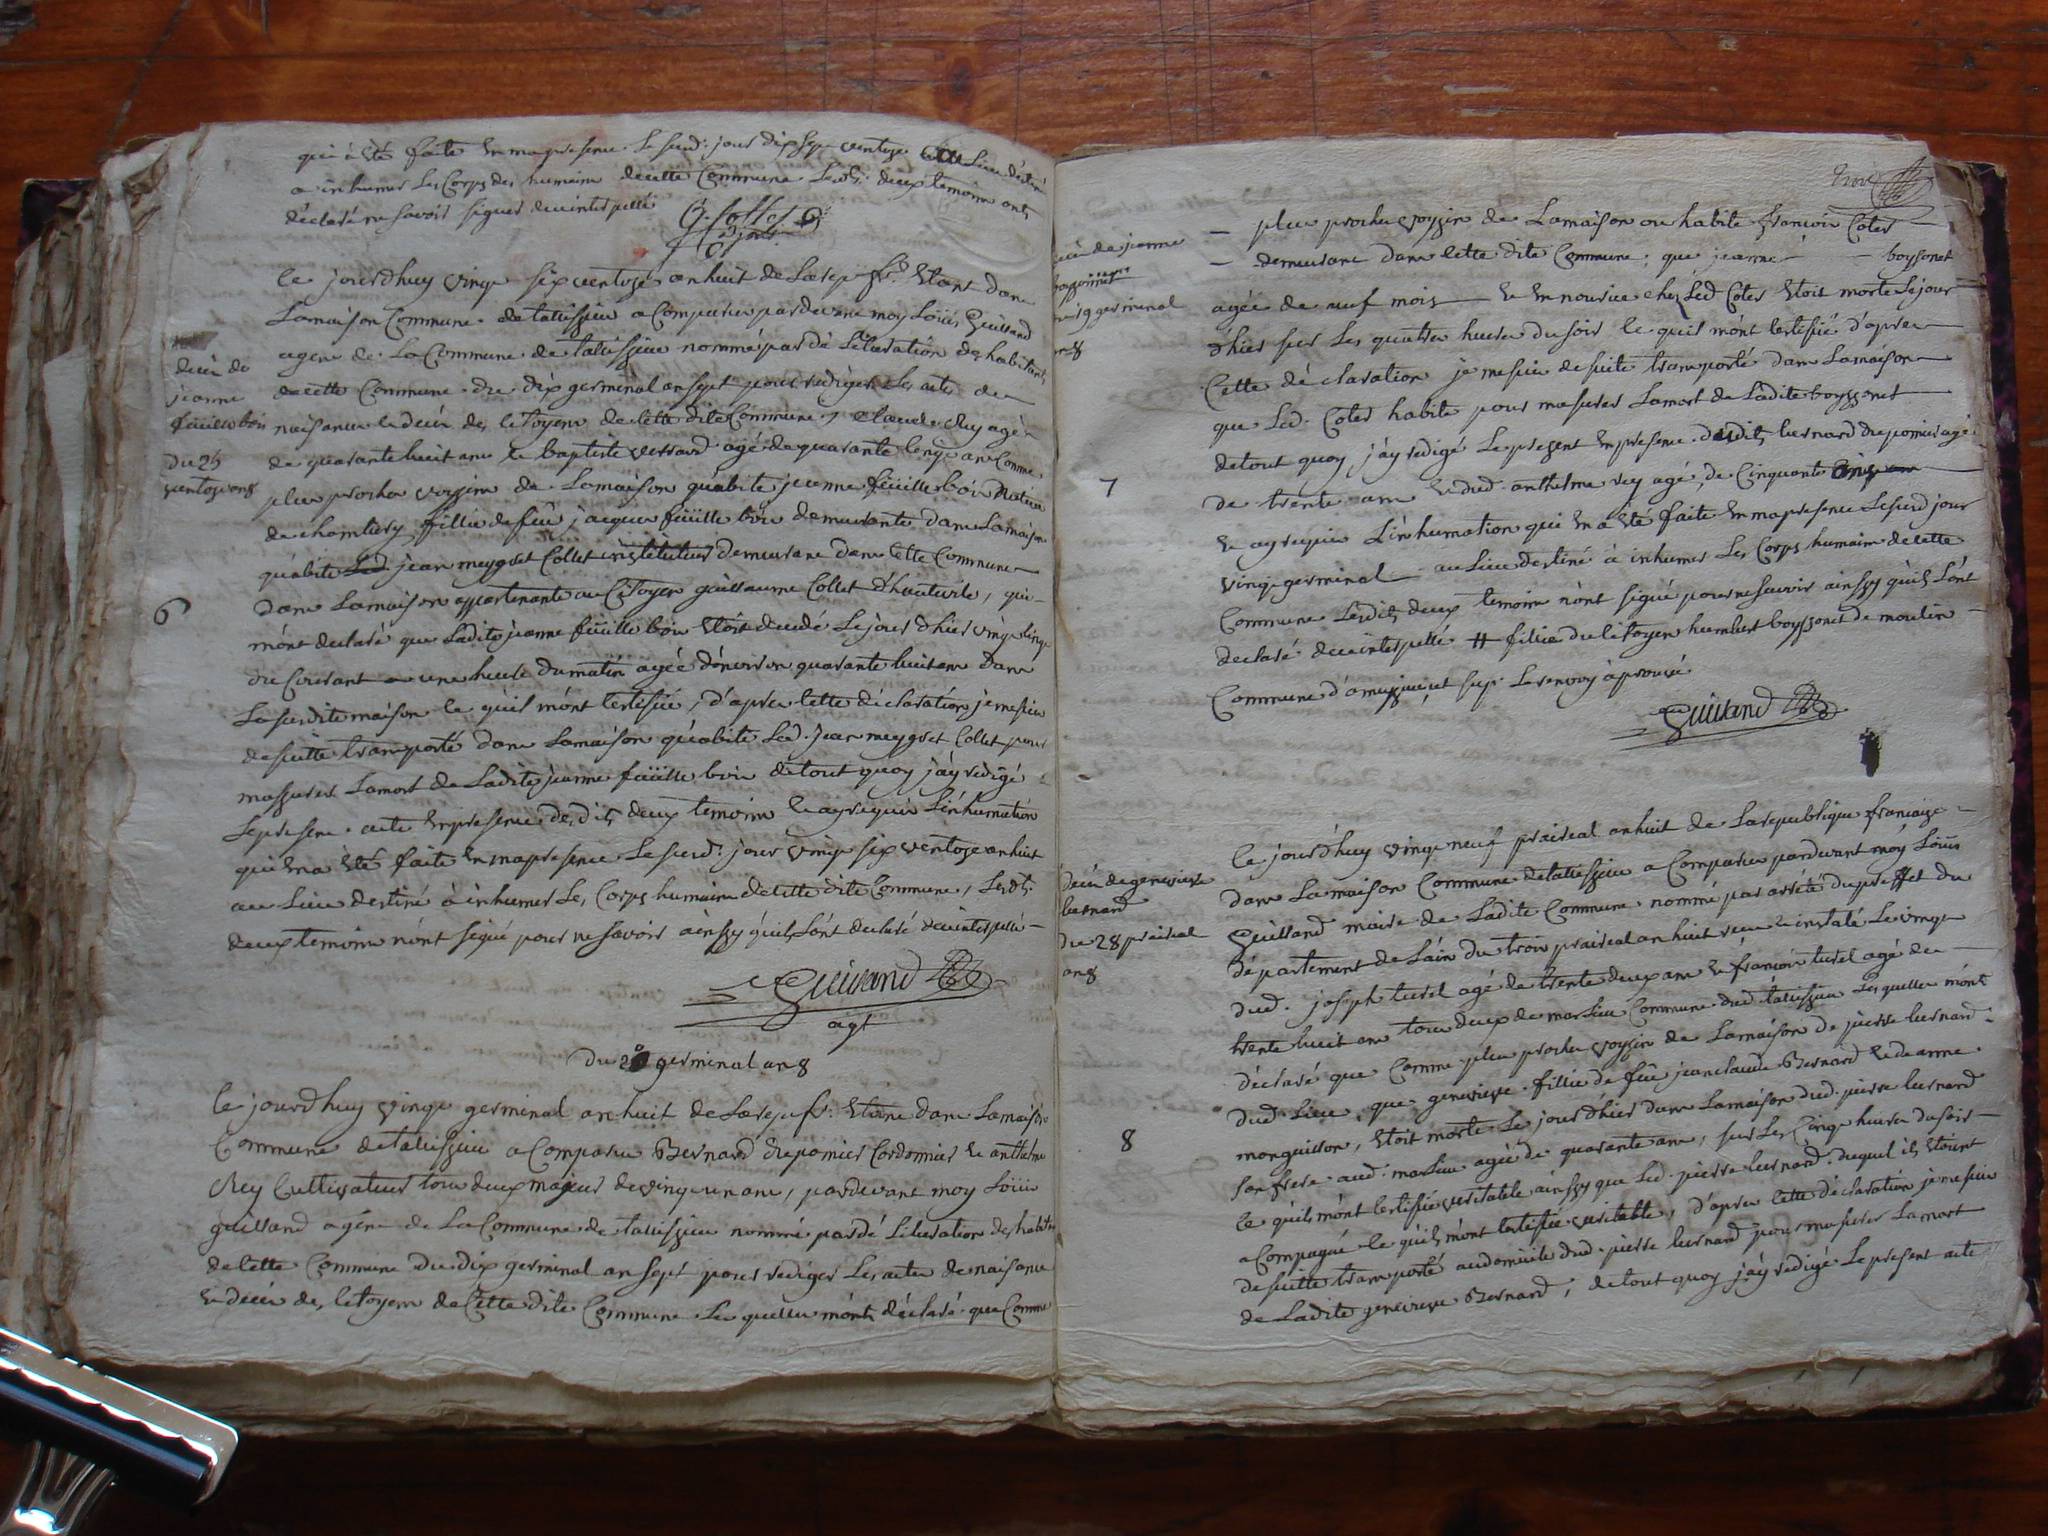 qui à été faite en ma presence le sud. jour dix sept ventoze au Lieu déstiné
a inhumer Les Corps des humains decette Commune Lesd. deux temoins onts
déclaré ne savoir signer de ce interpellé
C. Collet
adjoint
Le jourdhuy vingt six ventoze an huit de La rep. fr. Etant dans
La maison Commune de talissieu a Comparu pardevant moy Loüis Guilland
agent de La Commune de talissieu nommé par dé Liberation des habitants
de cette Commune du dix germinal an sept pour rediger les actes de
naisance et decés des citoyens de cette dite Commune, Claude Rey agé
de quarante huit ans et baptiste versard agé de quarante Cinq ans Comme
plus proches voysins de La maison qu'abite jeanne füille bois Native
de chambery fillie de feû jacques füille bois demeurante dans La maison
qu'abite Led. jean meygret Collet instituteur demeurant dans Cette Commune
dans La maison appartenante au Citoyen guillaume Collet d'hauteville, qui
m'ont declaré que Ladite jeanne füille bois Etoit decedé Le jour d'hier vingt Cinq
du Courant a une heure du matin agée d'environ quarante huit ans dans
La susdite maison ce qu'il m'ont Certifié, d'apres Cette déclaration je me suis
de suitte transporté dans La maison qu'abite Led. jean meygret Collet pour
m'assurer La mort de Ladite jeanne füille bois de tout quoy j'ay redigé
Le present acte En presence desdits deux temoins et ay requis L'inhumation
qui En a été faite En ma presence Le sud. jour vingt six ventoze an huit
au Lieu destiné à inhumer Les Corps humains de cette dite Commune, Lesdts
deux temoins n'ont signé pour ne savoir ainssy qu'ils L'ont declaré de ce interpellé
Guilland
agt
Decés de
jeanne
füille bois
du 25
ventoze an 8
6
Du 20 germinal an 8
Le jourdhuy vingt germinal an huit de La rep. fr. Etant dans La maison
Commune de talissieu a Comparu Bernard drepomier Cordonnier et anthelme
Rey Cultivateur tous deux majeurs de vingt un ans, pardevant moy Loüis
guilland agent de La Commune de talissieu nommé par dé Liberation des habitans
de cette Commune du dix germinal an sept pour rediger Les actes de naisance
et décés des Citoyens de Cette dite Commune Les quelles m'onts déclaré que Comme
plus proches voysins de La maison ou habite françois Coter
demeurant dans Cette dite Commune, que jeanne boysonet
agée de neuf mois et En nourice chez Led Coter Etoit morte Le jour
d'hier sur Les quatre heures du soir Ce quils m'ont Certifié d'apres
Cette déclaration je me suis de suite transporté dans La maison
que Led. Coter habite pour m'asurer La mort de Ladite boyssonet
de tout quoy j'ay redigé Le present En presence desdits bernard drepomier agé
de trente ans et dud. anthelme rey agé de Cinquante Cinq ans
et ay requis L'inhumation qui En a été faite En ma presence Le sud jour
vingt germinal au Lieu destiné à inhumer Les Corps humains de cette
Commune Lesdits deux temoins n'ont signé pour ne savoir ainssy qu'ils L'ont
declaré de ce interpellé # fillie du Citoyen humbert boyssonet de moulin
Commune d'ameyzieu, et sup. Le renvoy àprouvé
Guilland
jeanne
19 germinal
an 8
7
Le jourdhuy vingt neuf prairial an huit de La republique françaize
dans La maison Commune de talissieu a Comparu pardevant moy Loüis
Guilland maire de Ladite Commune nommé par arrêté du preffet du
département de L'ain du trois prairial an huit reçu et instalé Le vingt
dud. joseph turel agé de trente deux ans et françois turel agé de
trente huit ans tous deux de marlieu Commune dud. talissieu Les quelles m'onts
déclaré que Comme plus proches voysins de La maison de pierre bernard
dud. Lieu, que genevieve fillie de feû jean claude Bernard et de anne
monguisson, Etoit morte Le jour d'hier dans La maison dud. pierre bernard
son frere aud. marlieu agée de quarante ans, sur Les Cinq heures du soir
ce qu'ils m'ont Certifié veritable ainssy que Led. pierre bernard duquel ils Etoient
a Compagné Ce qu'ils m'ont Certifié veritable, d'apres Cette déclaration je me suis
de suitte transporté au domicile dud. pierre bernard pour m'asurer La mort
de Ladite genevieve Bernard, de tout quoy j'ay redigé Le present acte
Decés de genevieve
bernard
du 28 prairial
an 8
8